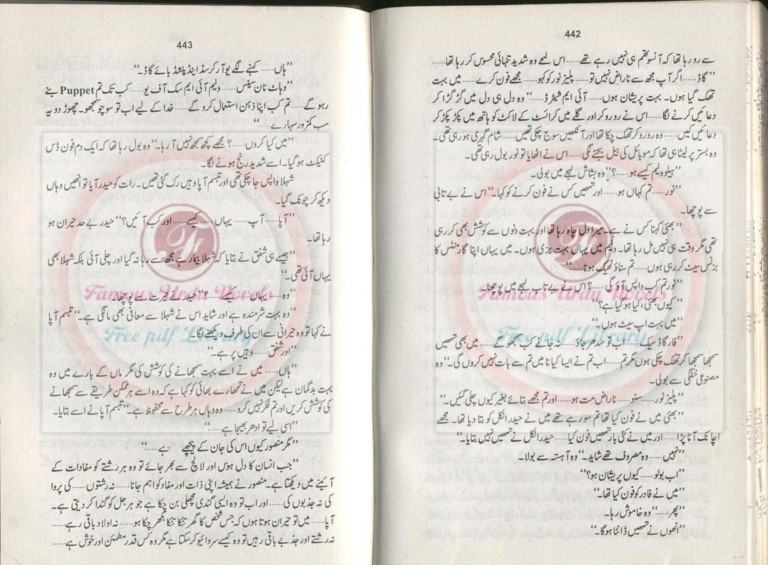 442
سے رو رہا تھا کہ آنسو تھم ہی نہیں رہے تھے...... اس لمحے وہ شدید تنہائی محسوس کر رہا تھا......
"گاڈ...... اگر آپ مجھ سے ناراض نہیں تو...... پلیز نور کو کہو...... مجھے فون کرے...... میں بہت
تھک گیا ہوں۔ بہت پریشان ہوں...... آئی ایم شیٹرڈ......" وہ دل ہی دل میں گڑگڑا کر
دعائیں کرنے لگا...... اس نے رو رو کر اور گلے میں کرائسٹ کے لاکٹ کو ہاتھ میں پکڑ پکڑ کر
دعائیں کیں...... وہ رو رو کر تھک چکا تھا اور آنکھیں سوج چکی تھیں...... شام گہری ہو رہی تھی۔
وہ بستر پر لیٹا ہی تھا کہ موبائل کی بیل بجنے لگی...... اس نے اٹھایا تو نور بول رہی تھی۔
"ہیلو ولیم کیسے ہو......؟" وہ بشاش لہجے میں بولی۔
"نور...... تم کہاں ہو...... اور تمھیں کس نے فون کرنے کو کہا۔" اس نے بے تابی
سے پوچھا۔
"بھئی کہنا کس نے ہے۔ میرا دل چاہ رہا تھا اور بہت دنوں سے کوشش بھی کر رہی
تھی مگر وقت ہی نہیں مل رہا تھا۔ ولیم میں یہاں بہت بزی ہوں۔ میں یہاں اپنا گارمنٹس کا
بزنس سیٹ کر رہی ہوں...... تم سناؤ ٹھیک ہونا۔"
"نور تم کب واپس آؤ گی......؟" اس نے بے تاب لہجے میں پوچھا۔
"کیوں بھئی، کیا ہو گیا ہے؟"
"میں بہت اپ سیٹ ہوں۔"
"فار گاڈ سیک...... اب تو سدھر جاؤ...... میں بھی تمھیں
سمجھا سمجھا کر تھک چکی ہوں مگر تم...... اب تم نے ایسا کیا نا میں تم سے بات نہیں کروں گی۔" وہ
مصنوعی خفگی سے بولی۔
"پلیز نور...... سنو...... ناراض مت ہو...... اور تم مجھے بتائے بغیر کیوں چلی گئیں۔"
"بھئی میں نے فون کیا تھا تم سو رہے تھے میں نے حیدر انکل کو بتا دیا تھا۔ مجھے
اچانک آنا پڑا...... اور میں نے کئی بار تمھیں فون کیا...... حیدر انکل نے تمھیں نہیں بتایا۔"
"نہیں...... وہ مصروف تھے شاید۔" وہ آہستہ سے بولا۔
"اب بولو...... کیوں پریشان ہو؟"
"میں نے فادر کو فون کیا تھا۔"
"پھر......" وہ خاموش رہا۔
"انھوں نے تمھیں ڈانٹا ہوگا۔"
443
"ہاں...... کہنے لگے یو آر کرسڈ اینڈ پنشڈ بائے گاڈ۔"
"وہاٹ نان سینس...... ولیم آئی ایم سک آف یو...... کب تک تم Puppet بنے
رہو گے...... تم کب اپنا ذہن استعمال کرو گے...... خدا کے لیے اب تو سوچو سمجھو۔ چھوڑ دو یہ
سب کمزور سہارے......"
"میں کیا کروں......؟ مجھے کچھ سمجھ نہیں آ رہا۔" وہ بول رہا تھا کہ ایک دم فون ڈس
کنیکٹ ہو گیا۔ اسے شدید رنج ہونے لگا۔
شہلا واپس جا چکی تھی اور تبسم آپا وہیں رک گئی تھیں۔ رات کو حیدر آیا تو انھیں وہاں
دیکھ کر چونک گیا۔
"آپا...... آپ...... یہاں...... کیسے...... اور کب آئیں؟" حیدر بے حد حیران ہو
رہا تھا۔
"جیسے ہی شفق نے بتایا کہ شہلا بیمار ہے مجھ سے رہا نہ گیا اور چلی آئی بلکہ شہلا بھی
یہاں آئی تھی۔"
"وہ...... یہاں...... حیدر نے حیرت سے پوچھا۔
"وہ بہت شرمندہ ہے اور شاید اس نے شہلا سے معافی بھی مانگی ہے۔" تبسم آپا
نے کہا تو وہ حیرانی سے ان کی طرف دیکھنے لگا۔
"اور شفق...... وہیں پر ہے۔"
"ہاں...... میں نے اسے بہت سمجھانے کی کوشش کی مگر ماں کے بارے میں وہ
بہت بدگمان ہے لیکن میں نے تمھارے بھائی کو کہا ہے کہ وہ اسے ہر ممکن طریقے سے سمجھانے
کی کوشش کریں اور تم فکر نہیں کرو...... وہ وہاں ہر طرح سے محفوظ ہے۔" تبسم آپا نے اسے بتایا۔
"اسی لیے تو ادھر بھیجا ہے......"
"مگر منصور کیوں اس کی جان کے پیچھے...... ہے......"
"جب انسان کا دل ہوس اور لالچ سے بھر جائے تو وہ ہر رشتے کو مفادات کے
آئینے میں دیکھتا ہے۔ منصور نے ہمیشہ اپنی ذات اور مفاد کو اہم جانا...... نہ رشتوں...... کی پروا
کی نہ جذبوں کی...... اور اب تو وہ ایسی گندی مچھلی بن چکا ہے جو ہر جل کو گندا کر دیتی ہے۔
آپا...... میں تو حیران ہوتا ہوں کہ جس شخص کا گھر تنکا تنکا بکھر چکا ہو...... نہ اولاد باقی رہے......
نہ رشتے اور جذبے باقی رہیں تو وہ کیسے سروائیو کر سکتا ہے مگر وہ کس قدر مطمئن اور خوش ہے......
Famous Urdu Novels
Free pdf Library
Famous Urdu Novels
Free pdf Library